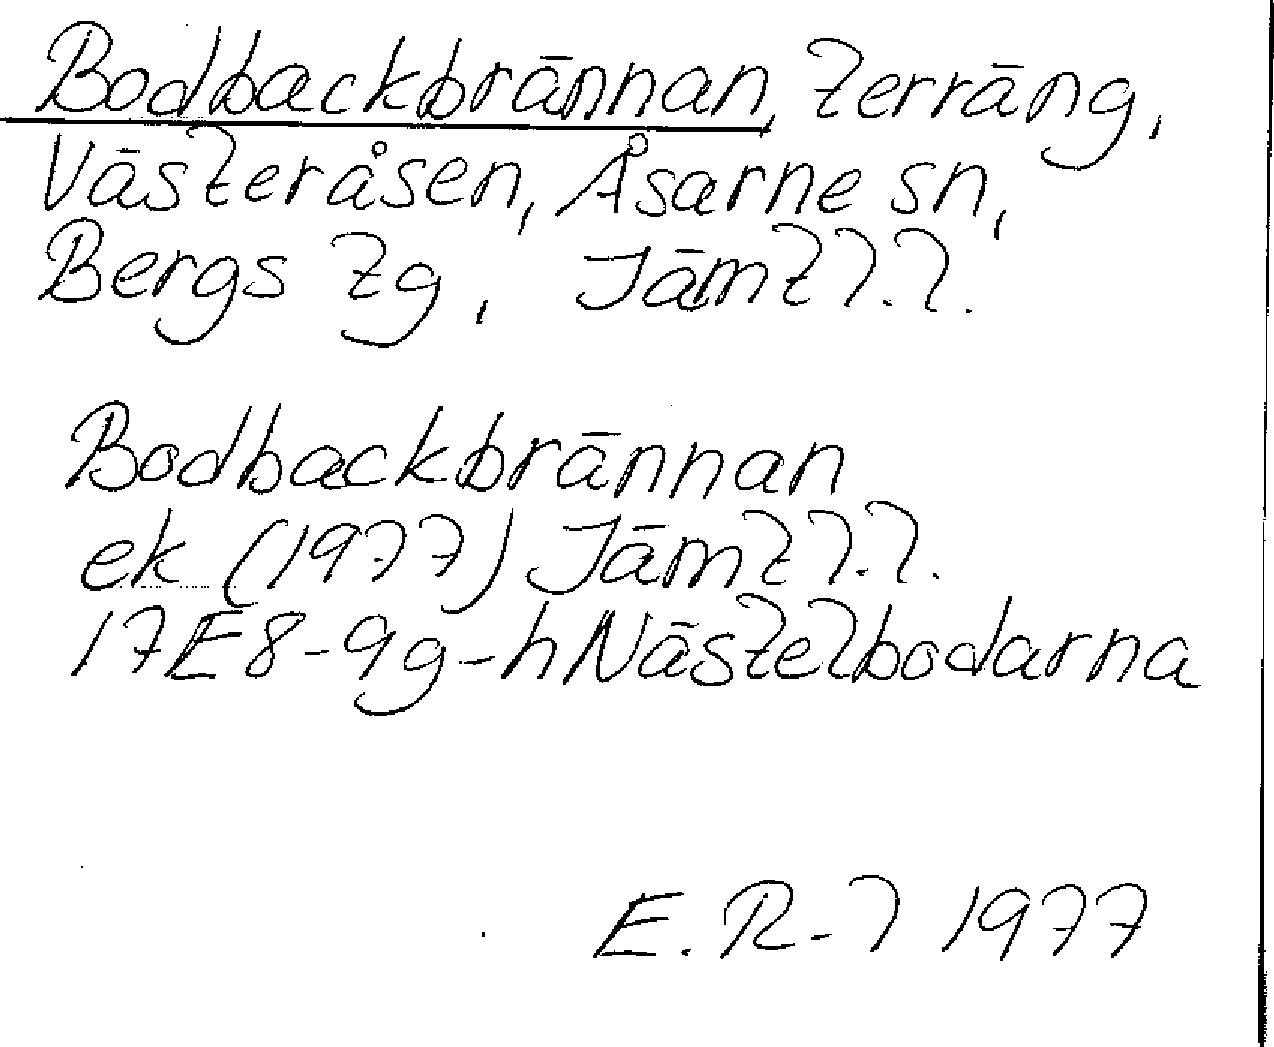 Bodbackbrännan, terräng,
Västeråsen, Åsarne sn,
Bergs tg, Jämtl.l.
Bodbackbrännan
ek (1977) Jämtl.l.
17E8-9g-h Nästelbodarna
E.R-l 1977